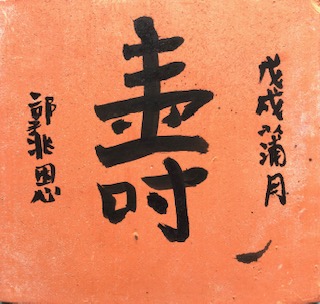 戊戌蒲月
壽
郭兆恩